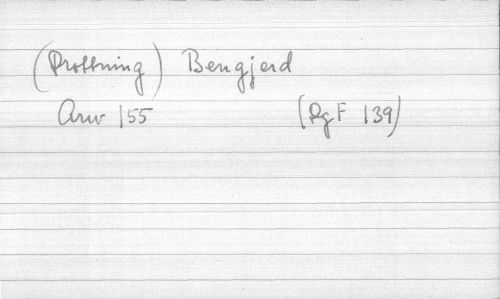 (Drottning) Bengjerd
Arw 155 (DgF 139)